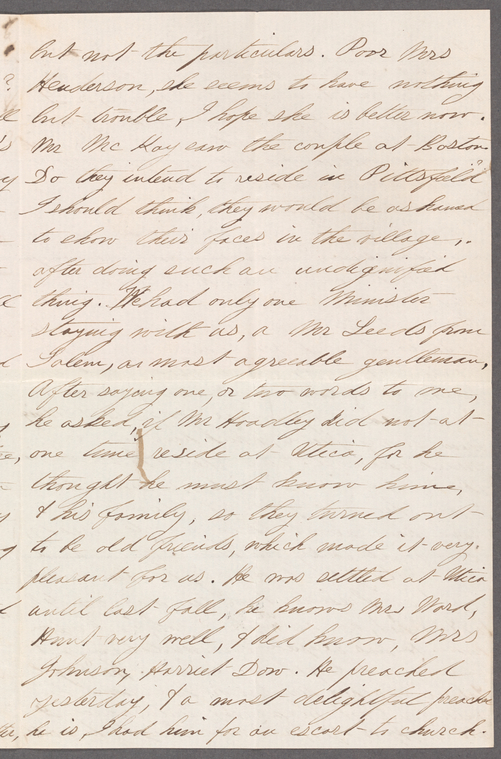 but not the particulars. Poor Mrs
Henderson, she seems to have nothing
but trouble, I hope she is better now.
Mr Mc Kay saw the couple at Boston
Do they intend to reside in Pittsfield
I should think, they would be ashamed
to show their faces in the village,.
after doing such an undignified
thing. We had only one Minister
staying with us, a Mr Leeds from
Salem, a most agreeable gentleman,
After saying one, or two words to me,
he asked, if Mr Hoadley did not at
one time reside at Utica, for he
thought he must know him,
& his family, so they turned out
to be old friends, which made it very.
pleasant for us. He was settled at Utica
until last fall, he knows Mrs Ward,
Hunt very well, & did know, Mrs
Johnson, Harriet Dow. He preached
yesterday, & a most delightful preacher
he is, I had him for an escort to church.